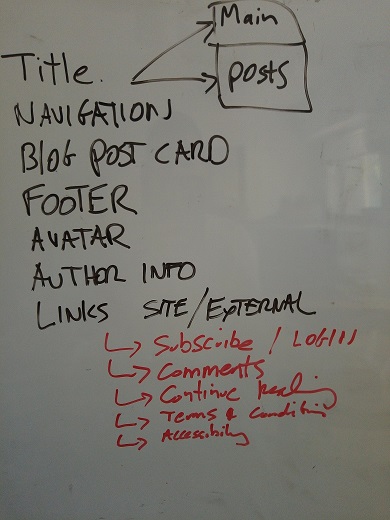 Main
Title.
posts
NAVIGATION
BLOG POST CARD
FOOTER
AVATAR
AUTHOR INFO
LINKS SITE/EXTERNAL
Subscribe / LOGIN
Comments
Continue Reading
Terms & Conditions
Accessibility